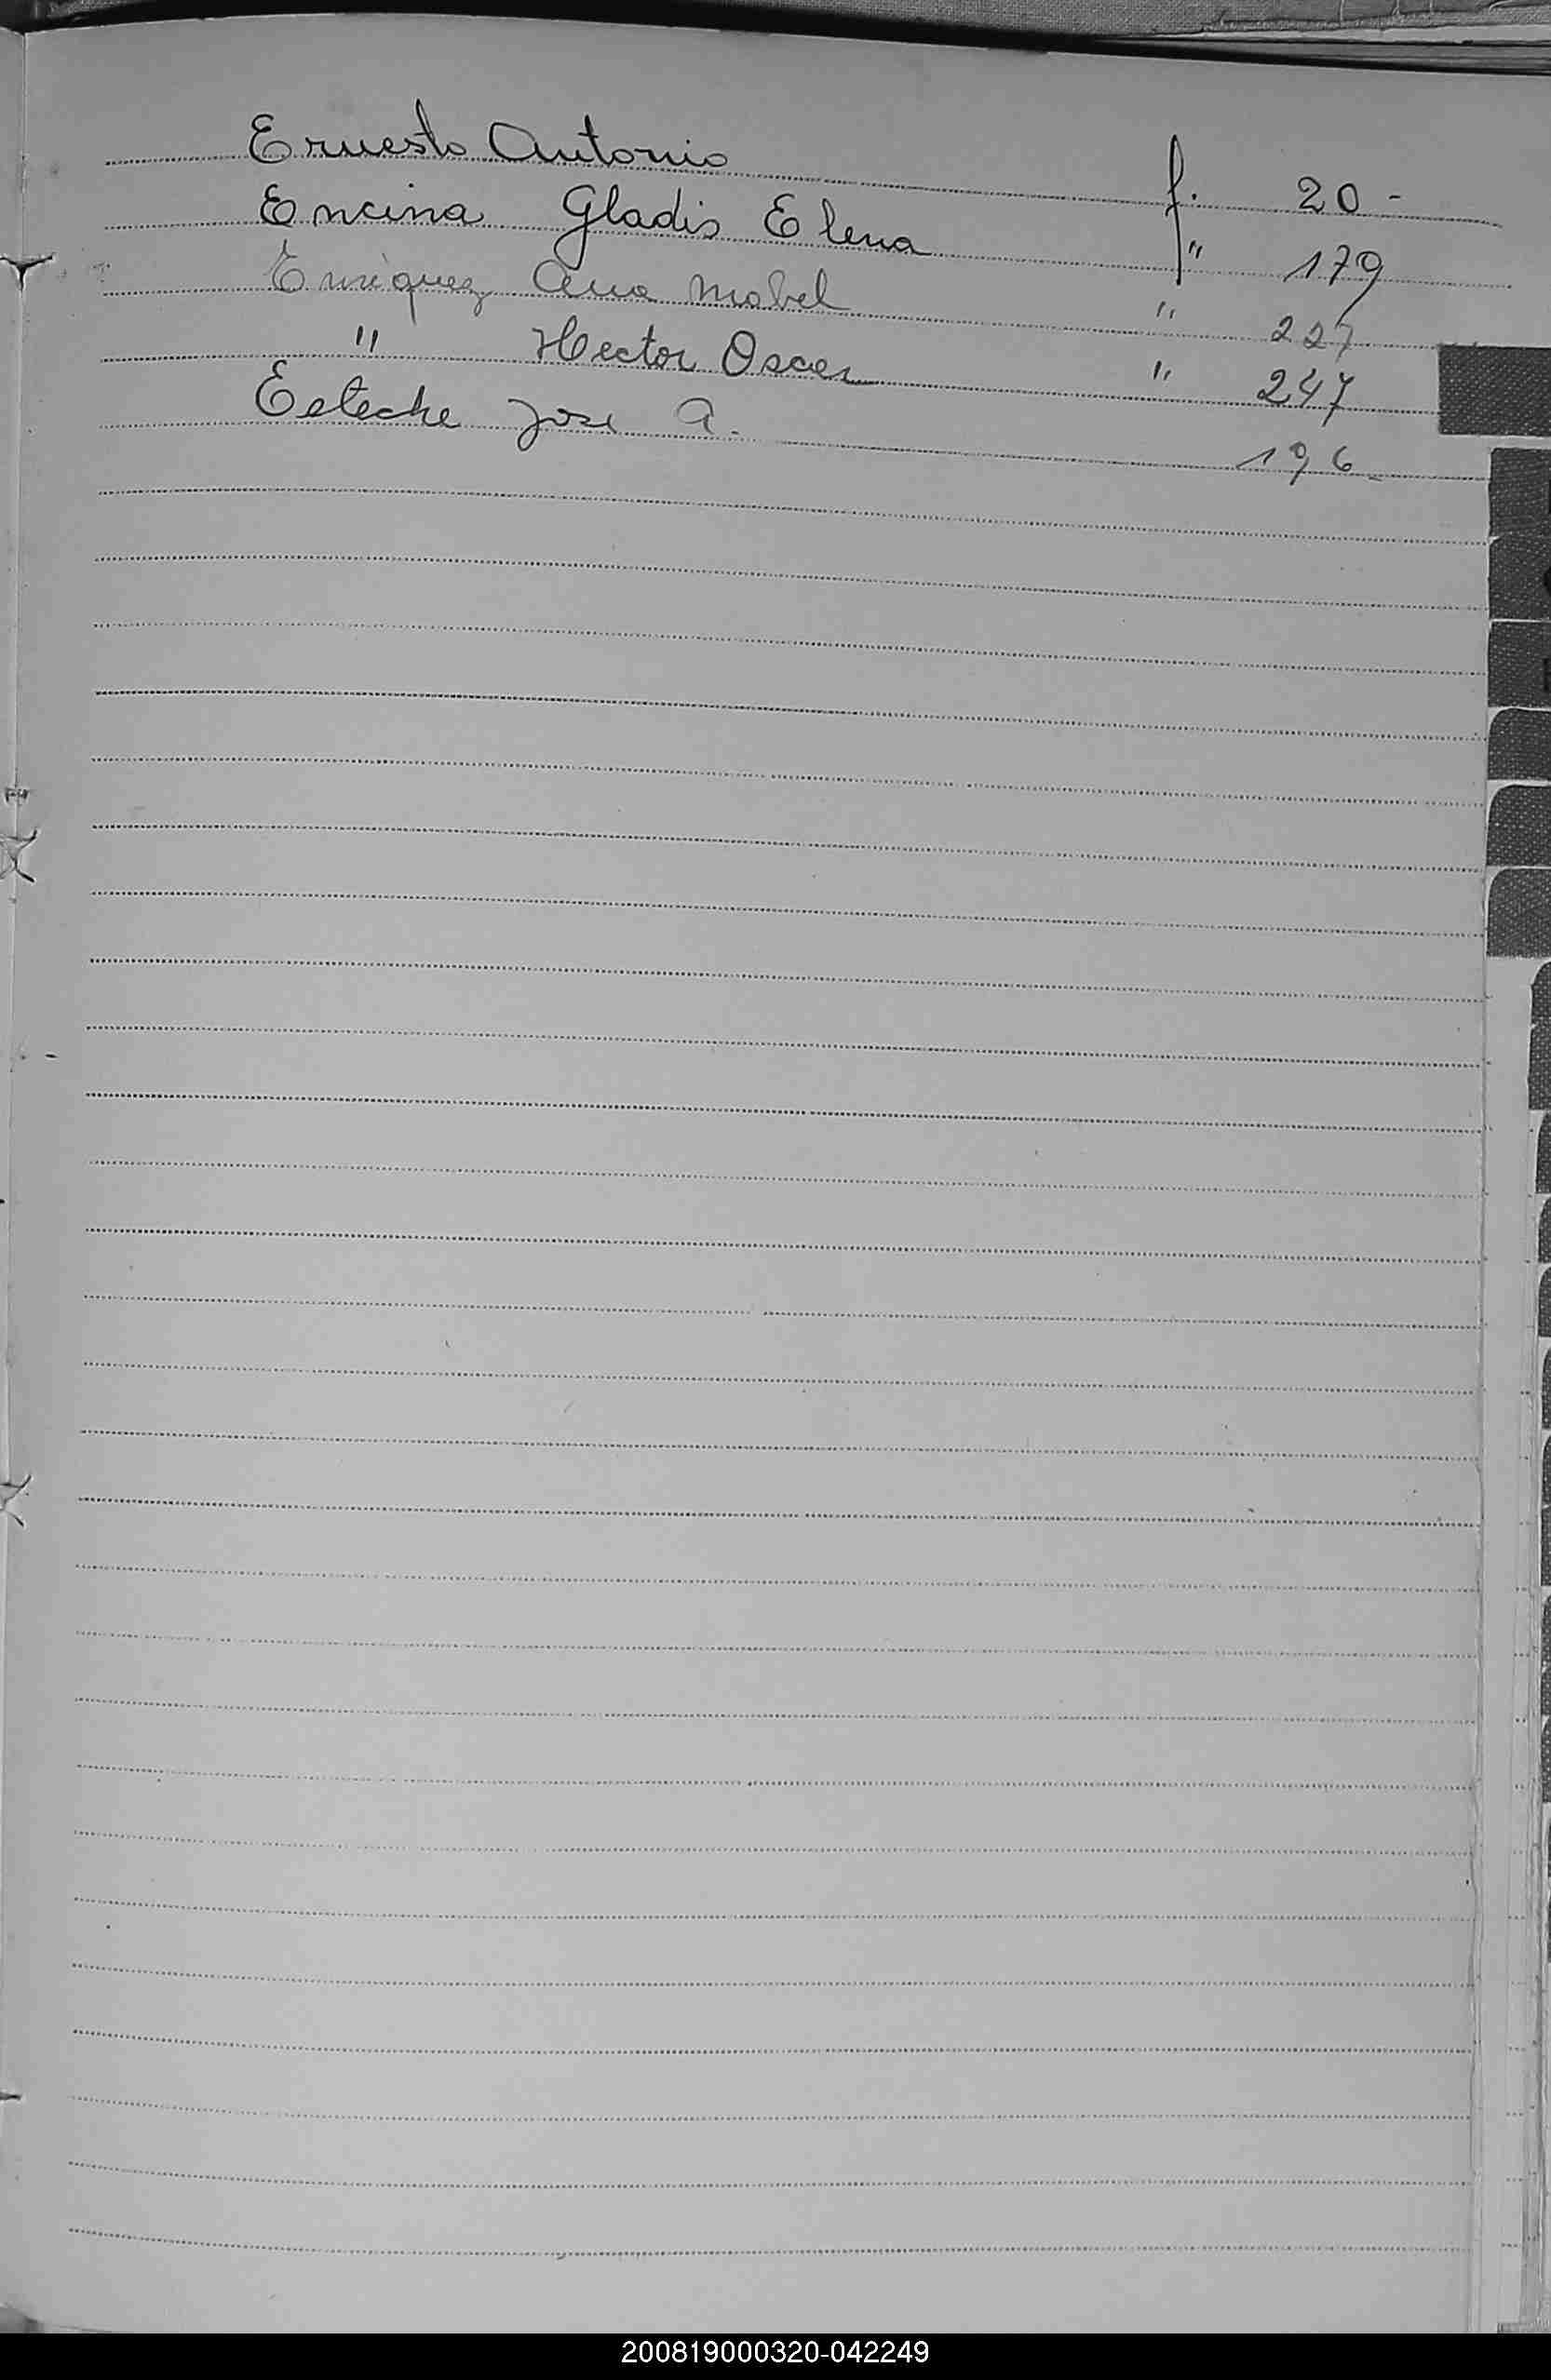 Ernesto Antonio f. 20 -
Encina Gladis Elena " 179
Enriquez Ana Mabel " 227
" Hector Oscar " 247
Eeteche Jose A. 196 -
200819000320-042249